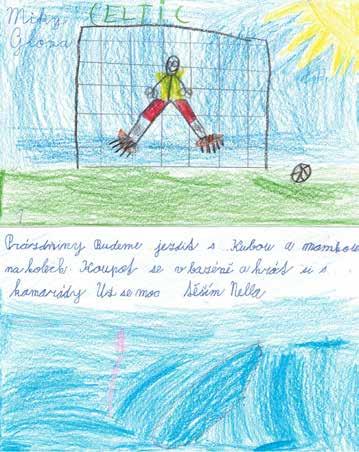 CELTIC
Miky
Glona
Prázdniny Budeme jezdit s Kubou a mamkose
na kolech. Koupat se v bazéně a hrát si s
kamarády Už se moc těším Nella